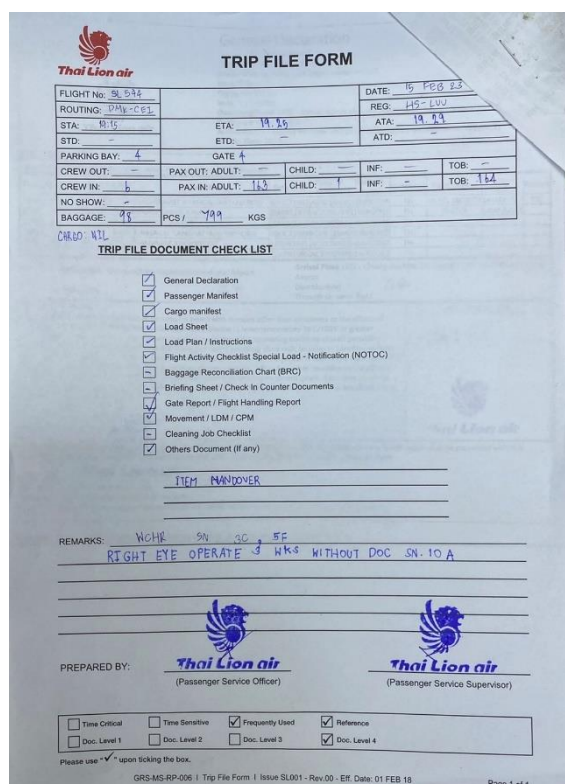 Thai Lion air
TRIP FILE FORM
FLIGHT No: SL 574 DATE: 15 FEB 23
ROUTING: DMK-CEI REG: HS-LUU
STA: 19:15 ETA: 19.25 ATA: 19.29
STD: - ETD: - ATD: -
PARKING BAY: 4 GATE 4
CREW OUT: - PAX OUT: ADULT: - CHILD: - INF: - TOB: -
CREW IN: 6 PAX IN: ADULT: 163 CHILD: 1 INF: - TOB: 164
NO SHOW: -
BAGGAGE: 98 PCS / 799 KGS
CARGO: NIL
TRIP FILE DOCUMENT CHECK LIST
General Declaration
Passenger Manifest
Cargo manifest
Load Sheet
Load Plan / Instructions
Flight Activity Checklist Special Load - Notification (NOTOC)
Baggage Reconciliation Chart (BRC)
Briefing Sheet / Check In Counter Documents
Gate Report / Flight Handling Report
Movement / LDM / CPM
Cleaning Job Checklist
Others Document (If any)
ITEM HANDOVER
REMARKS: WCHR SN 3C, 5F
RIGHT EYE OPERATE 3 WKS WITHOUT DOC SN. 10 A
PREPARED BY: Thai Lion air Thai Lion air
(Passenger Service Officer) (Passenger Service Supervisor)
Time Critical Time Sensitive Frequently Used Reference
Doc. Level 1 Doc. Level 2 Doc. Level 3 Doc. Level 4
Please use "✓" upon ticking the box.
GRS-MS-RP-006 I Trip File Form I Issue SL001 - Rev.00 - Eff. Date: 01 FEB 18 Page 1 of 1